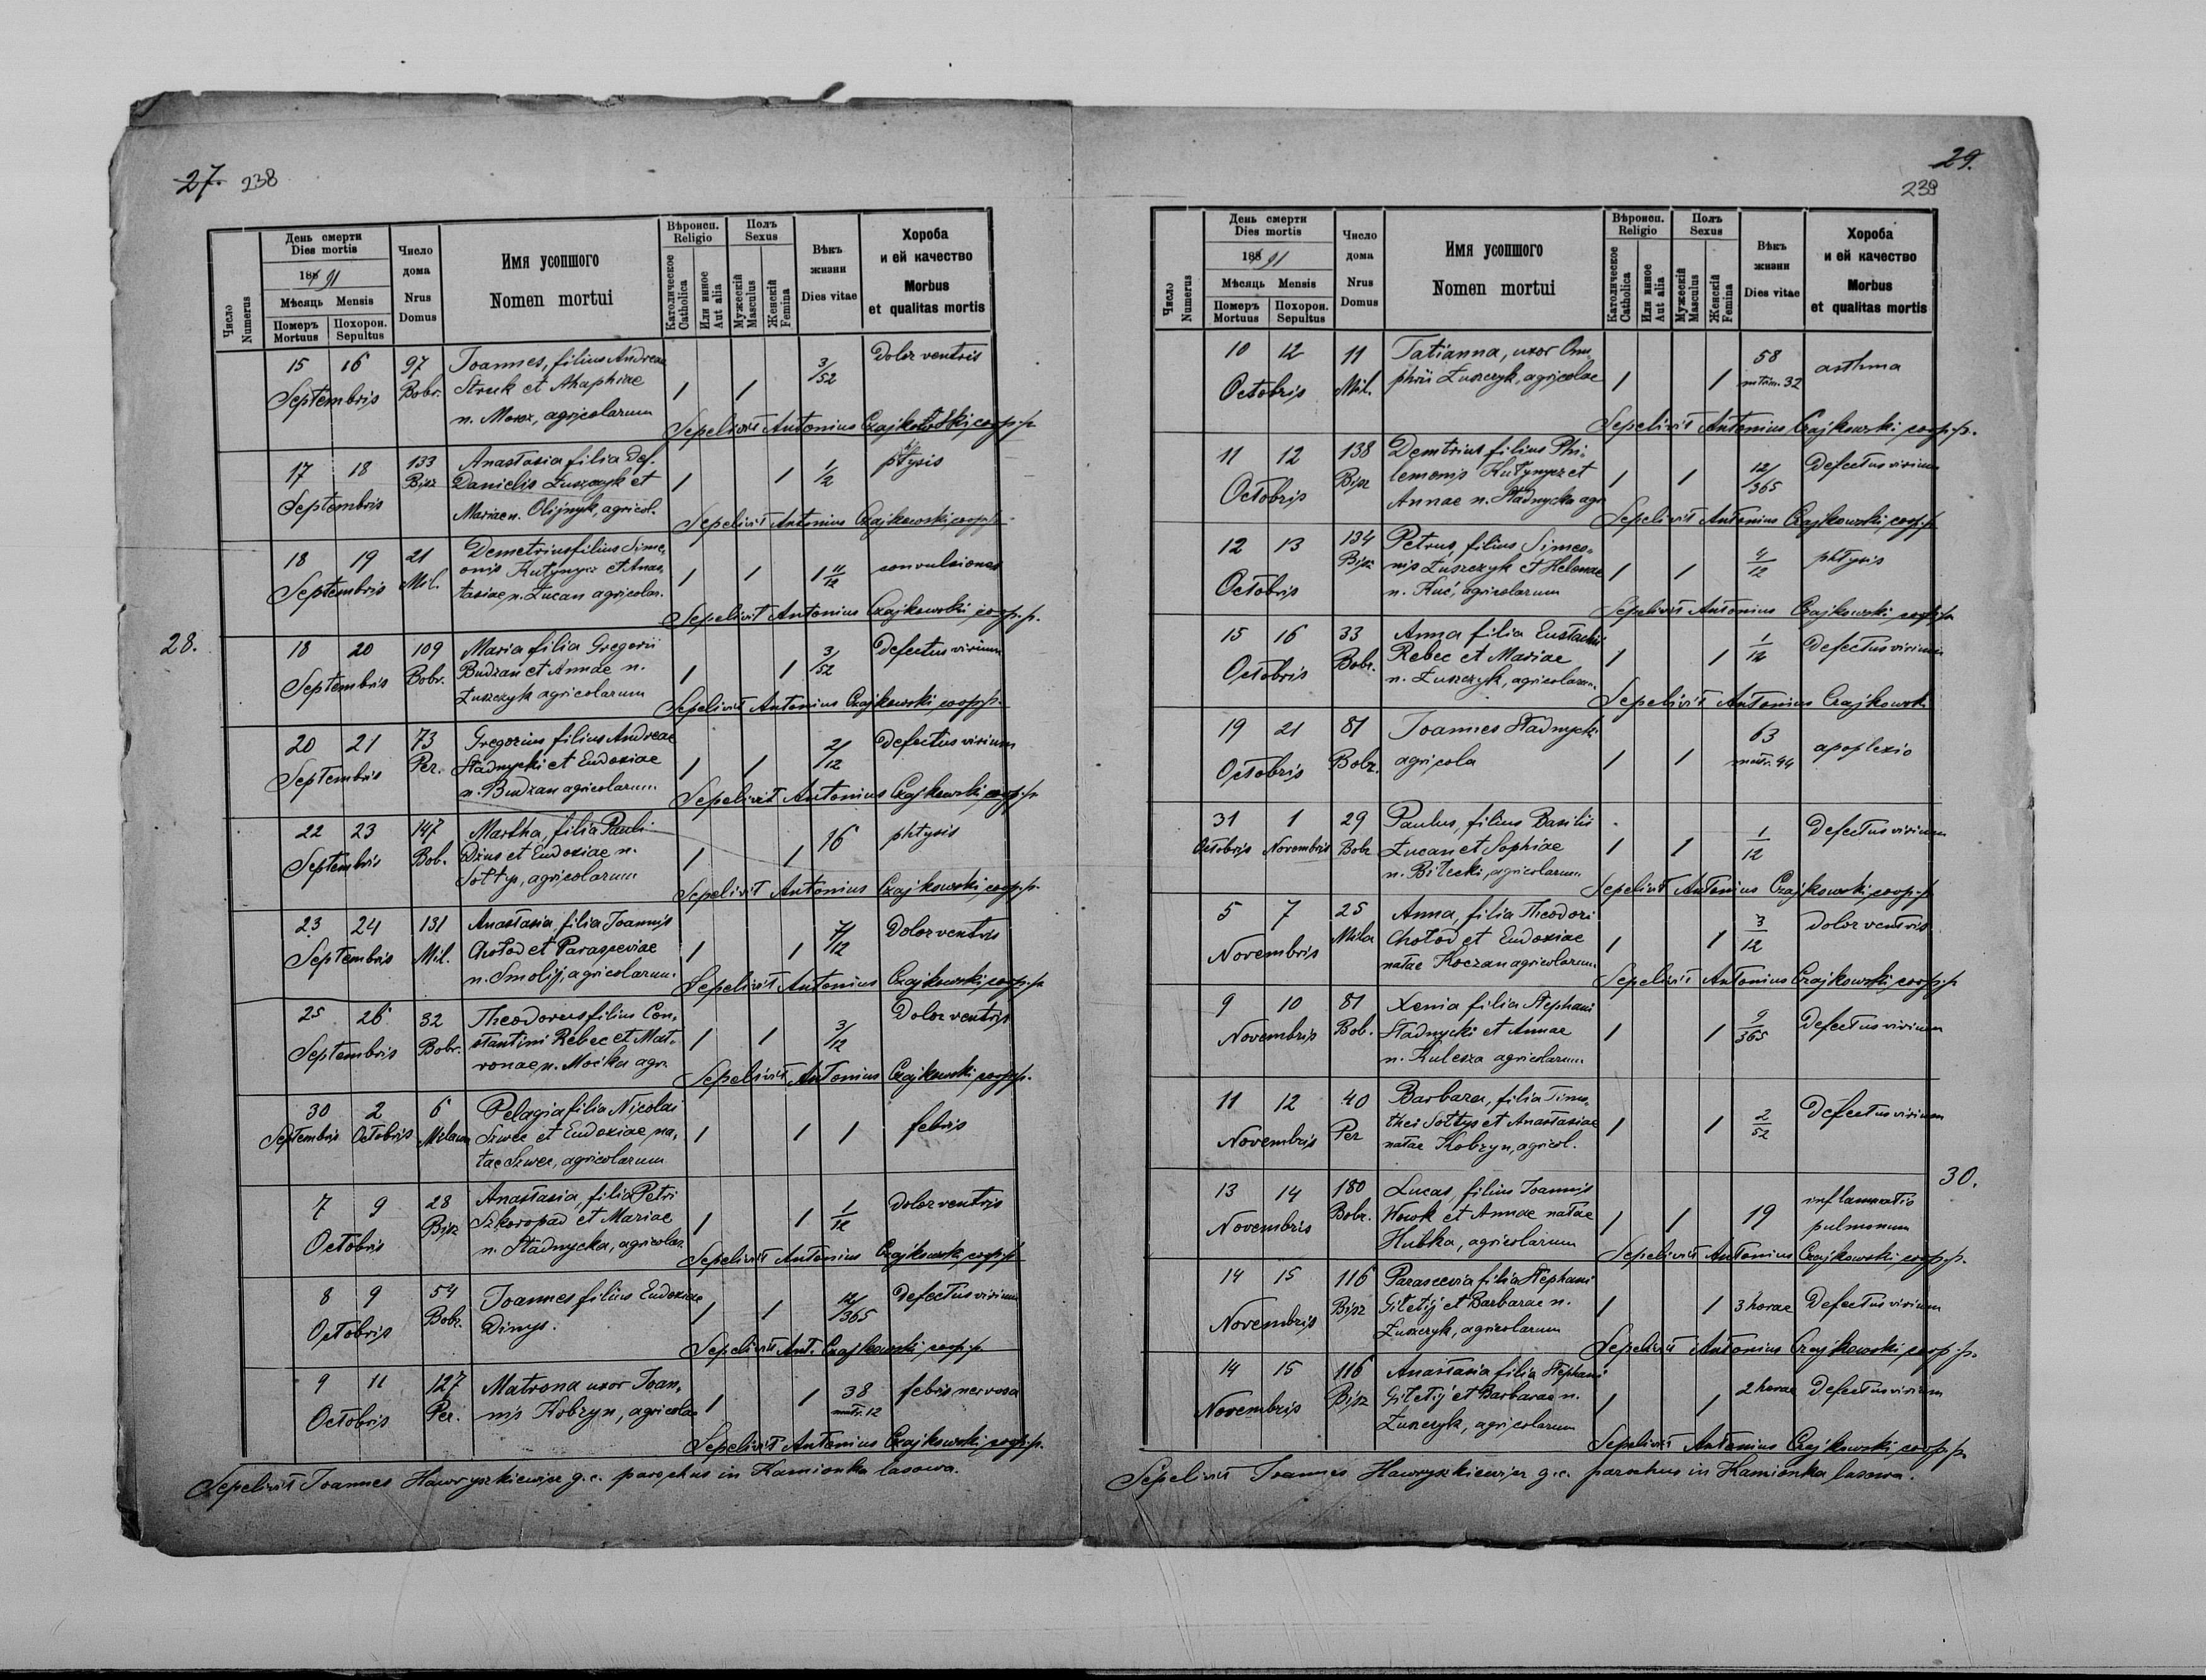 27. 238
Число Numerus
День смерти
Dies mortis
188 91
Мѣсяць Mensis
Померъ Mortuus
Похорон. Sepultus
Число дома
Nrus Domus
Имя усопшого
Nomen mortui
Вѣроисп.
Religio
Католическое Catholica
Или инное Aut alia
Полъ
Sexus
Мужескій Masculus
Женскій Femina
Вѣкъ жизни
Dies vitae
Хороба
и ей качество
Morbus
et qualitas mortis
15 16 97 Joannes, filius Andreae 3/52 Dolor ventris
Septembris Bobr. Struk et Ahaphiae 1 1
n. Moroz, agricolarum
Sepelivit Antonius Czajkowski, coop. p.
17 18 133 Anastasia filia def. 1/12 phtysis
Septembris Bisz Danielis Łuszczyk et 1 1
Mariae n. Olijnyk, agricol.
Sepelivit Antonius Czajkowski, coop. p.
18 19 21 Demetrius filius Sime-
Septembris Mil. onis Kutynycz et Anas- 1 1 1 11/12 convulsiones
tasiae, n. Łucan agricolar.
Sepelivit Antonius Czajkowski, coop. p.
28.
18 20 109 Maria filia Gregorii 3/52 Defectus virium
Septembris Bobr. Budzan et Annae n. 1 1
Łuszczyk agricolarum
Sepelivit Antonius Czajkowski coop. p.
20 21 73 Gregorius filius Andreae 2/12 Defectus virium
Septembris Per. Stadnycki et Eudoxiae 1 1
n. Budzan agricolarum
Sepelivit Antonius Czajkowski, coop. p.
22 23 147 Martha, filia Pauli 16 phtysis
Septembris Bob. Dżus et Eudoxiae n. 1 1
Sołtys, agricolarum
Sepelivit Antonius Czajkowski, coop. p.
23 24 131 Anastasia, filia Joannis 7/12 Dolor ventris
Septembris Mil. Chołod et Parasceviae 1 1
n. Smolij, agricolarum.
Sepelivit Antonius Czajkowski, coop. p.
25 26 32 Theodorus filius Con- 3/12 Dolor ventris
Septembris Bobr. stantini Rebec et Mat- 1 1
ronae, n. agr.
Sepelivit Antonius Czajkowski, coop. p.
30 2 6 Pelagia filia Nicolai
Septembris Octobris Szwec et Eudoxiae, na- 1 1 1 febris
tae Szwec, agricolarum
7 9 28 Anastasia, filia Petri 1/12 Dolor ventris
Octobris Bisz Szkoropad et Mariae 1 1
n. Stadnycka, agricolar.
Sepelivit Antonius Czajkowski, coop. p.
8 9 54 Joannes filius Eudoxiae 12/365 Defectus virium
Octobris Bobr. Dimys. 1 1
Sepelivit Ant. Czajkowski, coop. p.
9 11 127 Matrona uxor Joan- 38 febris nervosa
Octobris Per. nis Kobryn, agricolae 1 1 matr. 12
Sepelivit Antonius Czajkowski, coop. p.
Sepelivit Joannes Hawryszkiewicz g. c. parochus in Kamionka lasowa.
29.
239
Число Numerus
День смерти
Dies mortis
188 91
Мѣсяць Mensis
Померъ Mortuus
Похорон. Sepultus
Число дома
Nrus Domus
Имя усопшого
Nomen mortui
Вѣроисп.
Religio
Католическое Catholica
Или инное Aut alia
Полъ
Sexus
Мужескій Masculus
Женскій Femina
Вѣкъ жизни
Dies vitae
Хороба
и ей качество
Morbus
et qualitas mortis
10 12 11 Tatianna, uxor Onu- 58 asthma
Octobris Mil. phrii Łuszczyk, agricolae 1 1 matrim. 32
Sepelivit Antonius Czajkowski, coop. p.
11 12 138 Demtrius filius Phi- 12/365 Defectus virium
Octobris Bisz lemonis Kutynycz et 1 1
Annae n. Stadnycka agr
Sepelivit Antonius Czajkowski, coop. p.
12 13 134 Petrus, filius Simeo- 4/12 phtysis
Octobris Bisz nis Łuszczyk et Helenae 1 1
n. Kuć, agricolarum
Sepelivit Antonius Czajkowski, coop. p.
15 16 33 Anna filia Eustachii 1/12 Defectus virium
Octobris Bobr. Rebec et Mariae 1 1
n. Łuszczyk, agricolarum.
Sepelivit Antonius Czajkowski
19 21 81 Joannes Stadnycki 63 apoplexio
Octobris Bobr. agricola 1 1 matr. 44
31 1 29 Paulus, filius Basilii 1/12 Defectus virium
Octobris Novembris Bobr Łucan et Sophiae 1 1
n. Bilecki, agricolarum.
Sepelivit Antonius Czajkowski, coop. p.
5 7 25 Anna, filia Theodori 3/12 dolor ventris
Novembris Mila Chołod et Eudoxiae 1 1
natae Koczan agricolarum.
Sepelivit Antonius Czajkowski, coop. p.
9 10 81 Xenia filia Stephani 9/365 Defectus virium
Novembris Bob. Stadnycki et Annae 1 1
n. Kulesza agricolarum.
11 12 40 Barbara, filia Timo- 2/52 Defectus virium
Novembris Per thei Sołtys et Anastasiae 1 1
natae Kobryn, agricol.
30.
13 14 180 Lucas, filius Joannis 19 inflammatio
Novembris Bobr. Wowk et Annae natae 1 1 pulmonum
Hubka, agricolarum
Sepelivit Antonius Czajkowski coop. p.
14 15 116 Parascevia filia Stephani
Novembris Bisz Giletij et Barbarae n. 1 1 3 horae Defectus virium
Łuszczyk, agricolarum
Sepelivit Antonius Czajkowski, coop. p.
14 15 116 Anastasia filia Stephani 2 horae Defectus virium
Novembris Bisz Giletij et Barbarae n. 1 1
Łuszczyk, agricolarum
Sepelivit Antonius Czajkowski, coop. p.
Sepelivit Joannes Hawryszkiewicz g. c. parochus in Kamionka lasowa.